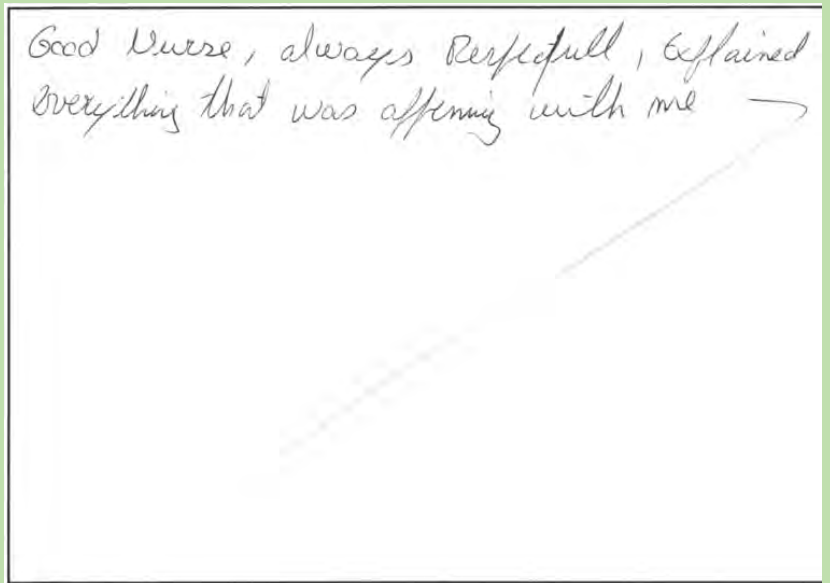 Good Nurse, always Respefull, Explained
Everything that was appening with me